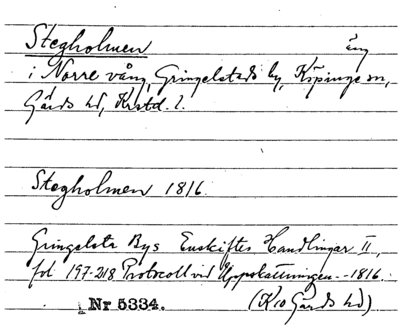 Stegholmen äng
i Norre vång, Gringelstads by, Köpinge sn,
Gärds hd, Krstd. l.
Stegholmen 1816.
Gringelsta Bys Enskiftes Handlingar II,
fol 197-218 Protocoll vid Uppskattningen -- 1816.
Nr 5334. (K10 Gärds hd)